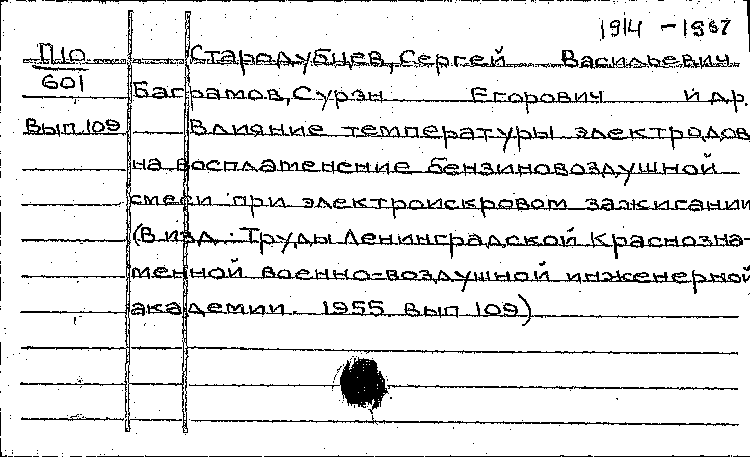 1914 - 1967
П10 Стародубцев, Сергей Васильевич
601
Баграмов, Сурэн Егорович и др.
Вып 109 Влияние температуры электродов
на воспламенение бензиновоздушной
смеси при электроискровом зажигании
(В изд.: Труды Ленинградской Краснозна-
менной военно-воздушной инженерной
академии. 1955 вып 109)